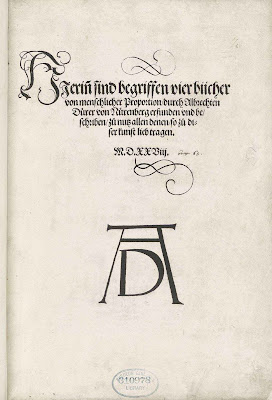 Hierin̄ sind begriffen vier bücher
von menschlicher Proportion durch Albrechten
Dürer von Nürenberg erfunden vnd be-
schriben zů nutz allen denen so zů di-
ser kunst lieb tragen.
M.D.XXViij.
AD
G10978